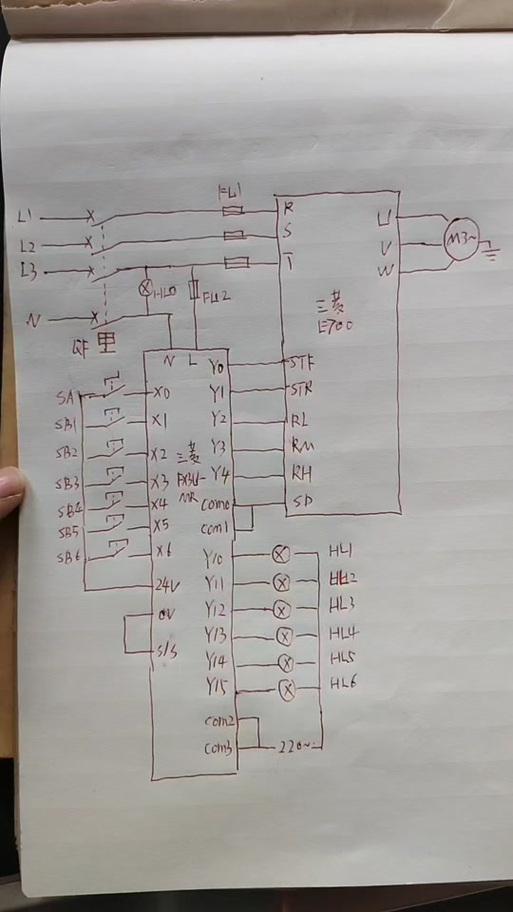 L1
L2
L3
N
QF
FU1
HL0
FU2
R
S
T
U
V
W
M3~
三菱
E700
N L
SA
SB1
SB2
SB3
SB4
SB5
SB6
X0
X1
X2
X3
X4
X5
X6
24V
0V
S/S
三菱
FX3U-
MR
Y0
Y1
Y2
Y3
Y4
com0
com1
STF
STR
RL
RM
RH
SD
Y10
Y11
Y12
Y13
Y14
Y15
com2
com3
HL1
HL2
HL3
HL4
HL5
HL6
220~